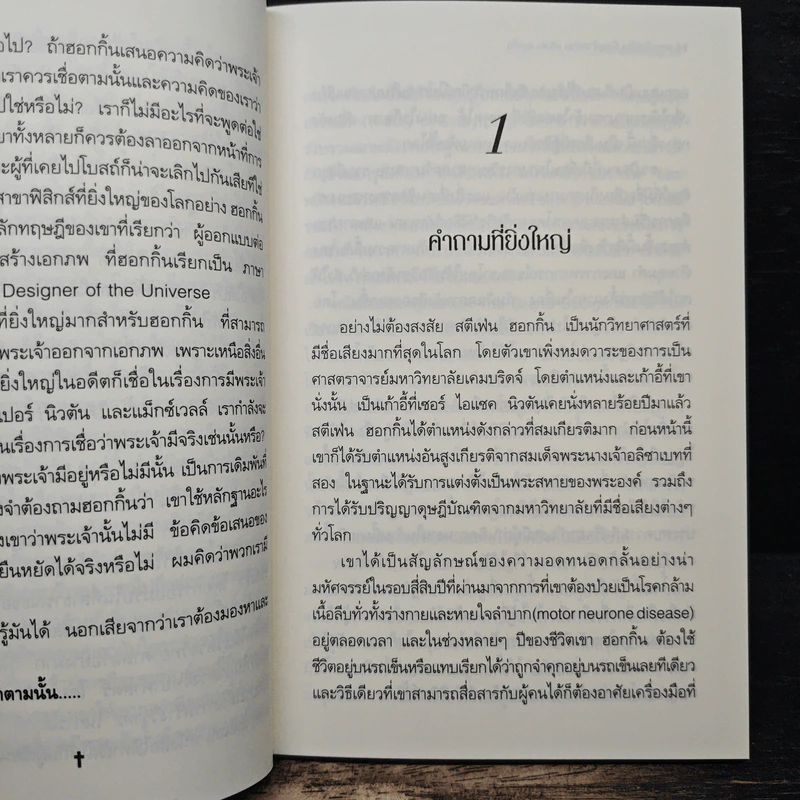 อไป? ถ้าฮอกกิ้นเสนอความคิดว่าพระเจ้า
เราควรเชื่อตามนั้นและความคิดของเราว่า
ปใช่หรือไม่? เราก็ไม่มีอะไรที่จะพูดต่อใช่
ขาทั้งหลายก็ควรต้องลาออกจากหน้าที่การ
ะผู้ที่เคยไปโบสถ์ก็น่าจะเลิกไปกันเสียทีใช่
สาขาฟิสิกส์ที่ยิ่งใหญ่ของโลกอย่าง ฮอกกิ้น
ลักทฤษฎีของเขาที่เรียกว่า ผู้ออกแบบต่อ
สร้างเอกภพ ที่ฮอกกิ้นเรียกเป็น ภาษา
Designer of the Universe
ที่ยิ่งใหญ่มากสำหรับฮอกกิ้น ที่สามารถ
พระเจ้าออกจากเอกภพ เพราะเหนือสิ่งอื่น
ยิ่งใหญ่ในอดีตก็เชื่อในเรื่องการมีพระเจ้า
เปอร์ นิวตัน และแม็กซ์เวลล์ เรากำลังจะ
นเรื่องการเชื่อว่าพระเจ้ามีจริงเช่นนั้นหรือ?
งพระเจ้ามีอยู่หรือไม่มีนั้น เป็นการเดิมพันที่
งจำต้องถามฮอกกิ้นว่า เขาใช้หลักฐานอะไร
งเขาว่าพระเจ้านั้นไม่มี ข้อคิดข้อเสนอของ
ยืนหยัดได้จริงหรือไม่ ผมคิดว่าพวกเรามี
รู้มันได้ นอกเสียจากว่าเราต้องมองหาและ
าตามนั้น.....
1
คำถามที่ยิ่งใหญ่
อย่างไม่ต้องสงสัย สตีเฟน ฮอกกิ้น เป็นนักวิทยาศาสตร์ที่
มีชื่อเสียงมากที่สุดในโลก โดยตัวเขาเพิ่งหมดวาระของการเป็น
ศาสตราจารย์มหาวิทยาลัยเคมบริดจ์ โดยตำแหน่งและเก้าอี้ที่เขา
นั่งนั้น เป็นเก้าอี้ที่เซอร์ ไอแซค นิวตันเคยนั่งหลายร้อยปีมาแล้ว
สตีเฟน ฮอกกิ้นได้ตำแหน่งดังกล่าวที่สมเกียรติมาก ก่อนหน้านี้
เขาก็ได้รับตำแหน่งอันสูงเกียรติจากสมเด็จพระนางเจ้าอลิซาเบทที่
สอง ในฐานะได้รับการแต่งตั้งเป็นพระสหายของพระองค์ รวมถึง
การได้รับปริญญาดุษฎีบัณฑิตจากมหาวิทยาลัยที่มีชื่อเสียงต่างๆ
ทั่วโลก
เขาได้เป็นสัญลักษณ์ของความอดทนอดกลั้นอย่างน่า
มหัศจรรย์ในรอบสี่สิบปีที่ผ่านมาจากการที่เขาต้องป่วยเป็นโรคกล้าม
เนื้อลีบทั่วทั้งร่างกายและหายใจลำบาก(motor neurone disease)
อยู่ตลอดเวลา และในช่วงหลายๆ ปีของชีวิตเขา ฮอกกิ้น ต้องใช้
ชีวิตอยู่บนรถเข็นหรือแทบเรียกได้ว่าถูกจำคุกอยู่บนรถเข็นเลยทีเดียว
และวิธีเดียวที่เขาสามารถสื่อสารกับผู้คนได้ก็ต้องอาศัยเครื่องมือที่